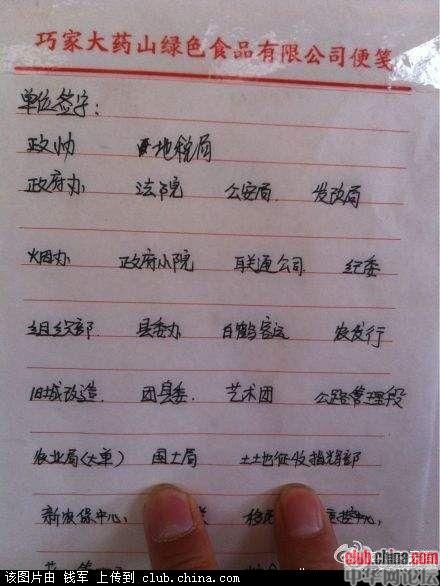 巧家大药山绿色食品有限公司便笺
单位签字：
政协 地税局
政府办 法院 公安局 发改局
烟办 政府小院 联通公司 纪委
组织部 县委办 白鹤客运 农发行
旧城改造 团县委 艺术团 公路管理段
农业局(大单) 国土局 土地征收指挥部
新农保中心, 移 控中心,
club.china.com
中华网论坛
该图片由 钱军 上传到 club.china.com